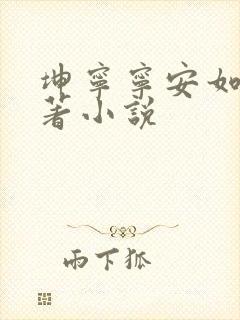 坤寧寧安如
著小說
雨下狐